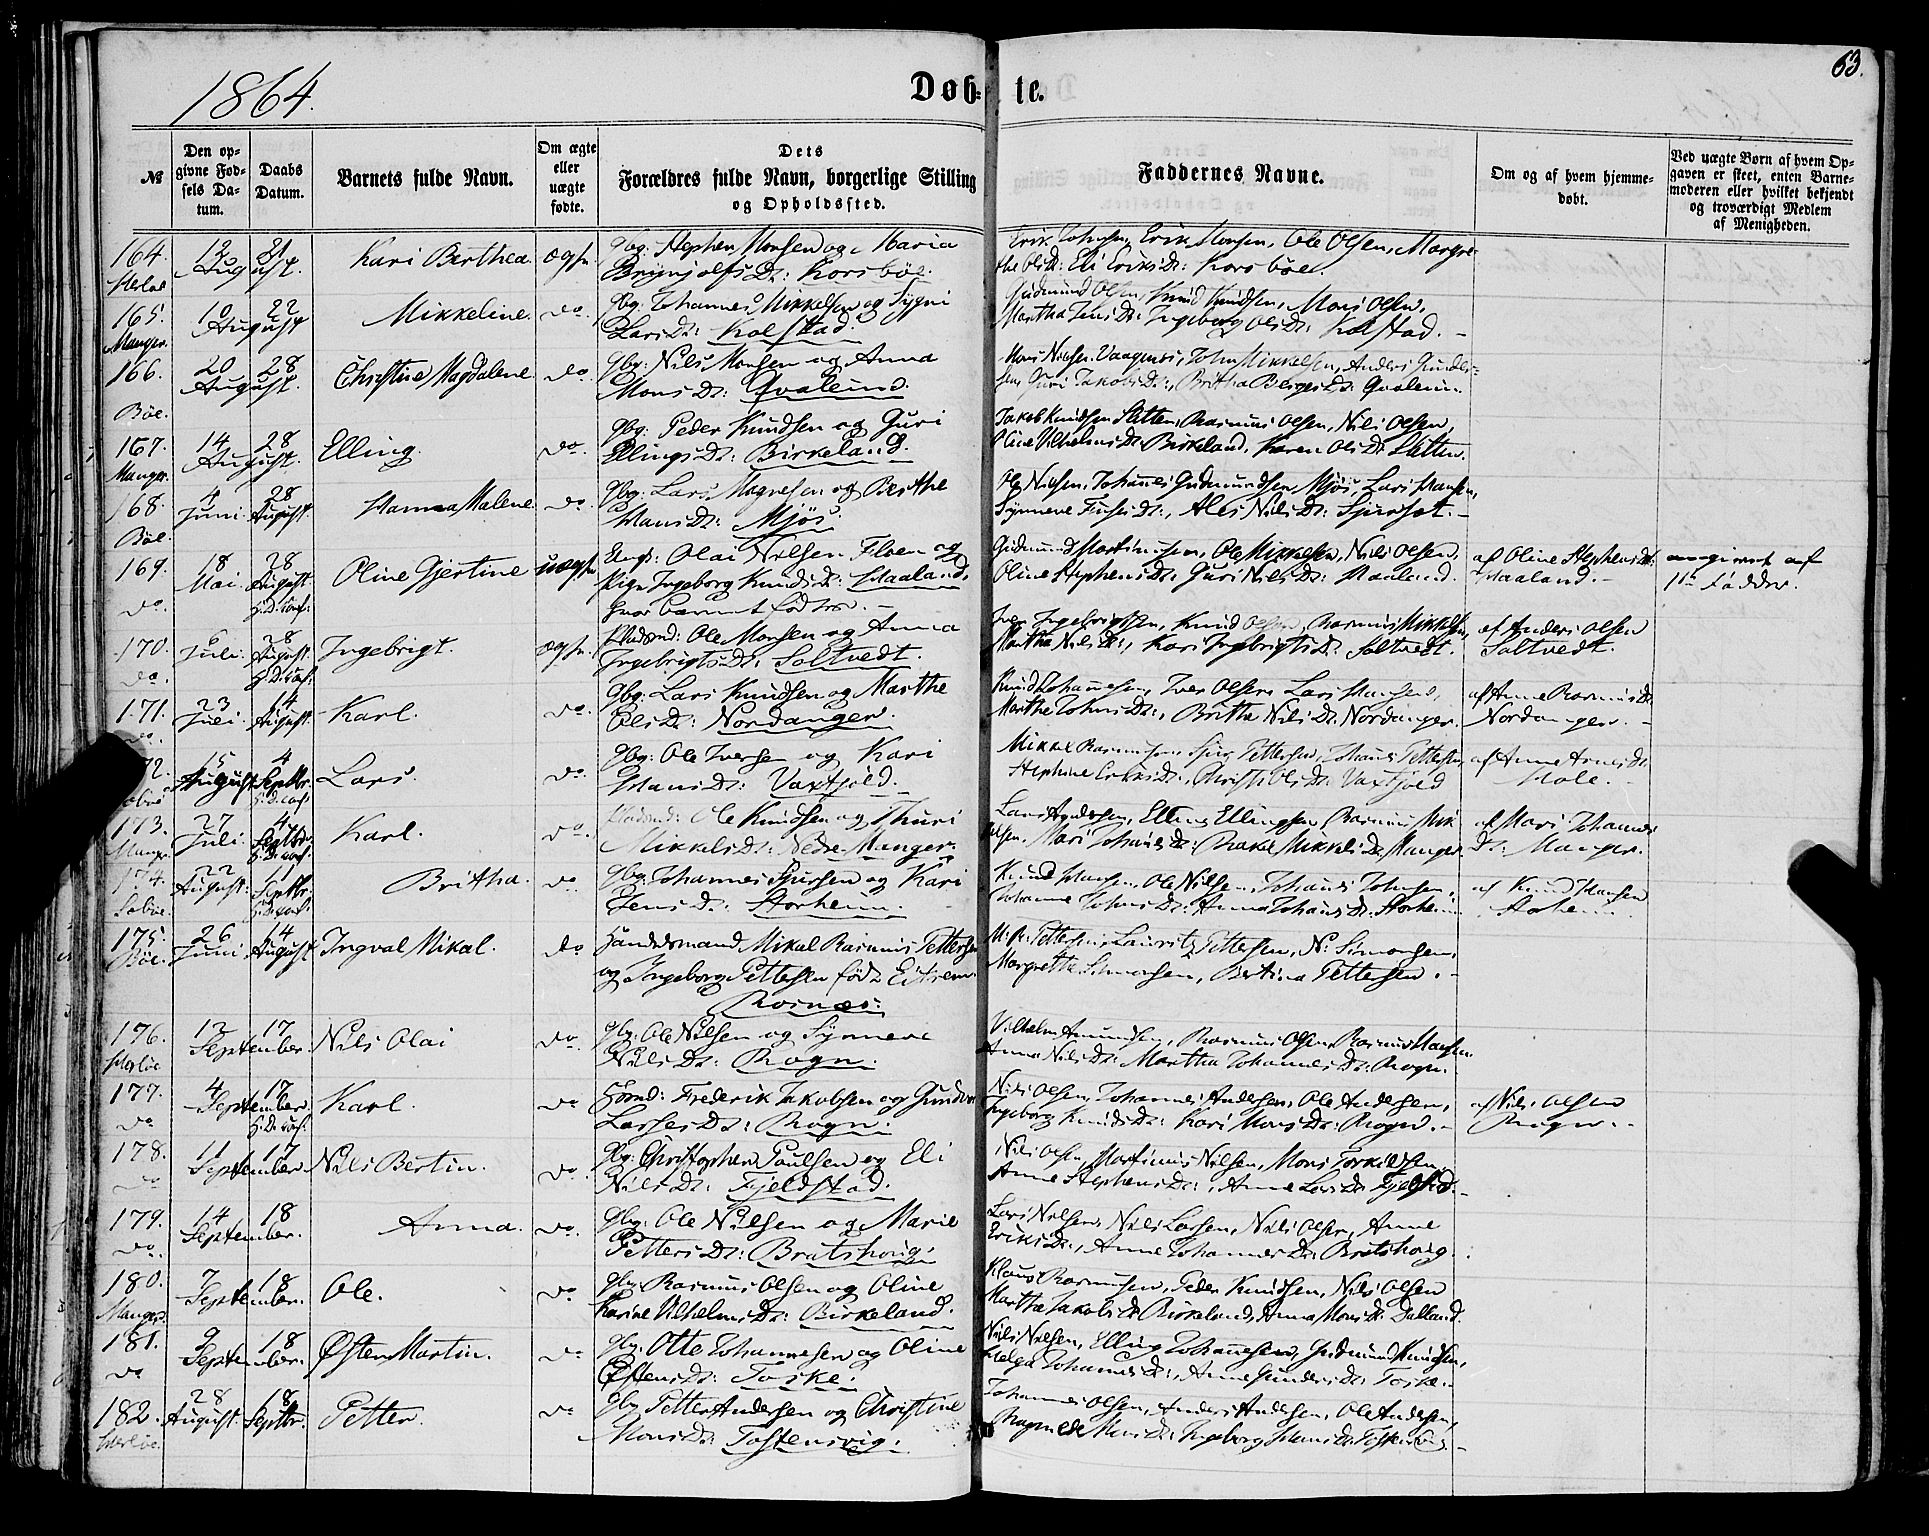 1864.
Døb- te.
63.
№
Den opgivne Fødsels Datum.
Daabs Datum.
Barnets fulde Navn.
Om ægte eller uægte fødte.
Dets Forældres fulde Navn, borgerlige Stilling og Opholdssted.
Faddernes Navne.
Om og af hvem hjemmedøbt.
Ved uægte Børn af hvem Opgaven er skeet, enten Barnemoderen eller hvilket bekjendt og troværdigt Medlem af Menigheden.
164. 21 August. Kari Berthea. ægte. Gbg: Stephen Monsen og Maria
Brynjolfsdr: Korsbøe.
Erik Johnsen, Erik Monsen, Ole Olsen, Margre-
the Olsdr: Eli Eriksdr: Korsbøe.
165. Manger. 10 22 August Mikkeline. do. Gbg: Johannes Mikkelsen og Sygni
Larsdr: Kolstad.
Gudmund Olsen, Knud Knudsen, Mons Olsen,
Martha Jensdr: Ingeborg Olsdr: Kolstad.
166. Bøe. 20 28 August. Christine Magdalene do Gbg: Nils Monsen og Anna
Monsdr: Qvaleim.
Mons Nilsen Vaagenes, John Mikkelsen, Anders Gunder-
sen, Guri Jakobsdr:, Britha Børgesdr: Qvaleim.
167. Manger. 14 28 August. Elling. do. Gbg: Peder Knudsen og Guri
Ellingsdr: Birkeland.
Jakob Knudsen Sletten, Rasmus Olsen, Nils Olsen,
Oline Vilhelmsdr: Birkeland, Karen Olsdr: Sletten.
168. Bøe. 4 Juni 28 August. Hanna Malene do. Gbg: Lars Magnesen og Berthe
Hansdr: Mjøs.
Ole Nilsen, Johannes Gudmundsen Mjøs, Lars Hansen,
Synneve
169. do. 18 Mai 28 August. H:D: conf: Oline Gjertine uægte Ungk: Olai Nilsen Floen og
Pige Ingeborg Knudsdr: Haaland,
hvor Barnet fødtes.
Gudmund Martinusen, Ole Mikkelsen, Nils Olsen,
Oline Stephensdr: Guri Nilsdr: Haaland.
af Oline Stephensdr:
Haaland.
angivet af
1ste Fadder.
170. do. 6 Juli 28 August. H:D: conf: Ingebrigt. ægte. Pladsmd: Ole Monsen og Anna
Ingebrigtsdr: Soltvedt.
Iver Ingebrigtsen, Knud Olsen, Rasmus Mikkelsen,
Martha Nilsdr:, Kari Ingebrigtsdr: Soltvedt.
af Anders Olsen
Soltvedt.
171. do. 23 Juli 14 August. Karl. do. Gbg: Lars Knudsen og Marthe
Olsdr: Nordanger.
Knud Johannesen, Iver Olsen, Lars Hansen,
Marthe Johnsdr:, Brithe Nilsdr: Nordanger.
af Anne Rasmusdr
Nordanger.
15 August 4 Septbr. H:D: conf: Lars. do. Gbg: Ole Iversen og Kari
Hansdr: Vaxtfjeld.
Mikkel Rasmusen, Sjur Pettersen, Johannes Pettersen,
Stephine Eriksdr:, Olsdr: Vaxtfjeld
af Anne Arnesdr
173. Manger. 27 Juli 4 Septbr. H:D: conf: Karl. do. Pladsmd: Ole Knudsen og Thuri
Mikkelsdr: Nedre Manger.
Lars Andersen, Elling Ellingsen, Rasmus Mik
kelsen, Mari Johansdr: Rakel Mikkelsdr Manger.
af Mari Johannes
dr: Manger.
174. Sæbøe. 22 August. 11 Septbr. H:D: conf: Britha. do Gbg: Johannes Sjursen og Kari
Jensdr: Storheim.
Knud Hansen, Ole Nilsen, Johannes Johnsen,
Johanne Johnsdr: Anna Johansdr: Storheim
af Knud Hansen
Storheim.
175. Bøe. 26 Juni 14 August Ingval Mikal. do Handelsmand Mikal Rasmus Pettersen
og Ingeborg Pettersen født Eitrem.
Rosnæs:
M. R. Pettersen, Lauritz Pettersen, N: Simonsen,
Margretha Simonsen, Bertina Pettersen.
176. Herløe 13 17 September. Nils Olai do Gbg: Ole Nilsen og Synneve
Nilsdr: Rogn.
Vilhelm Amundsen, Rasmus Olsen, Rasmus Hansen
Anna Nilsdr: Martha Johannesdr: Rogn.
177. do 4 17 September H:D: conf: Karl. do Frederik Jakobsen og Gundvor
Larsesdr: Rogn.
Nils Olsen, Johannes Andersen, Ole Andersen,
Ingeborg Knudsdr: Kari Monsdr: Rogn.
af Nils Olsen
Rogn.
178. do 11 17 September Nils Bertin. do Gbg: Christopher Paulsen og Eli
Nilsdr: Fjeldstad.
Nils Olsen, Martinus Nilsen, Mons Torkildsen,
Anne Stephensdr:, Anne Larsdr: Fjeldstad.
179. do. 14 18 September. Anna. do. Gbg: Ole Nilsen og Marie
Pettersdr: Bratshoug.
Lars Nilsen, Nils Larsen, Nils Olsen, Anne
Eriksdr:, Anne Johannesdr: Bratshoug.
180. Manger. 7 18 September. Ole. do Gbg: Rasmus Olsen og Oline
Karine Vilhelmsdr: Birkeland.
Klaus Rasmusen, Peder Knudsen, Nils Olsen
Martha Jakobsdr Birkeland, Anna Monsdr: Dalland.
181. do 9 18 September. Østen Martin. do Gbg: Otte Johannesen og Oline
Østensdr: Toske.
Nils Nilsen, Elling Johannesen, Gudmund Knudsen,
Helga Johannesdr:, Anne Gundersdr: Toske.
182. Herløe. 28 August. 18 Septbr. Petter. do Gbg: Petter Andersen og Christine
Monsdr: Tostensvig.
Johannes Olsen, Anders Andersen, Ole Andersen,
Ragnilde Monsdr: Ingeborg Hansdr: Tostensvig.